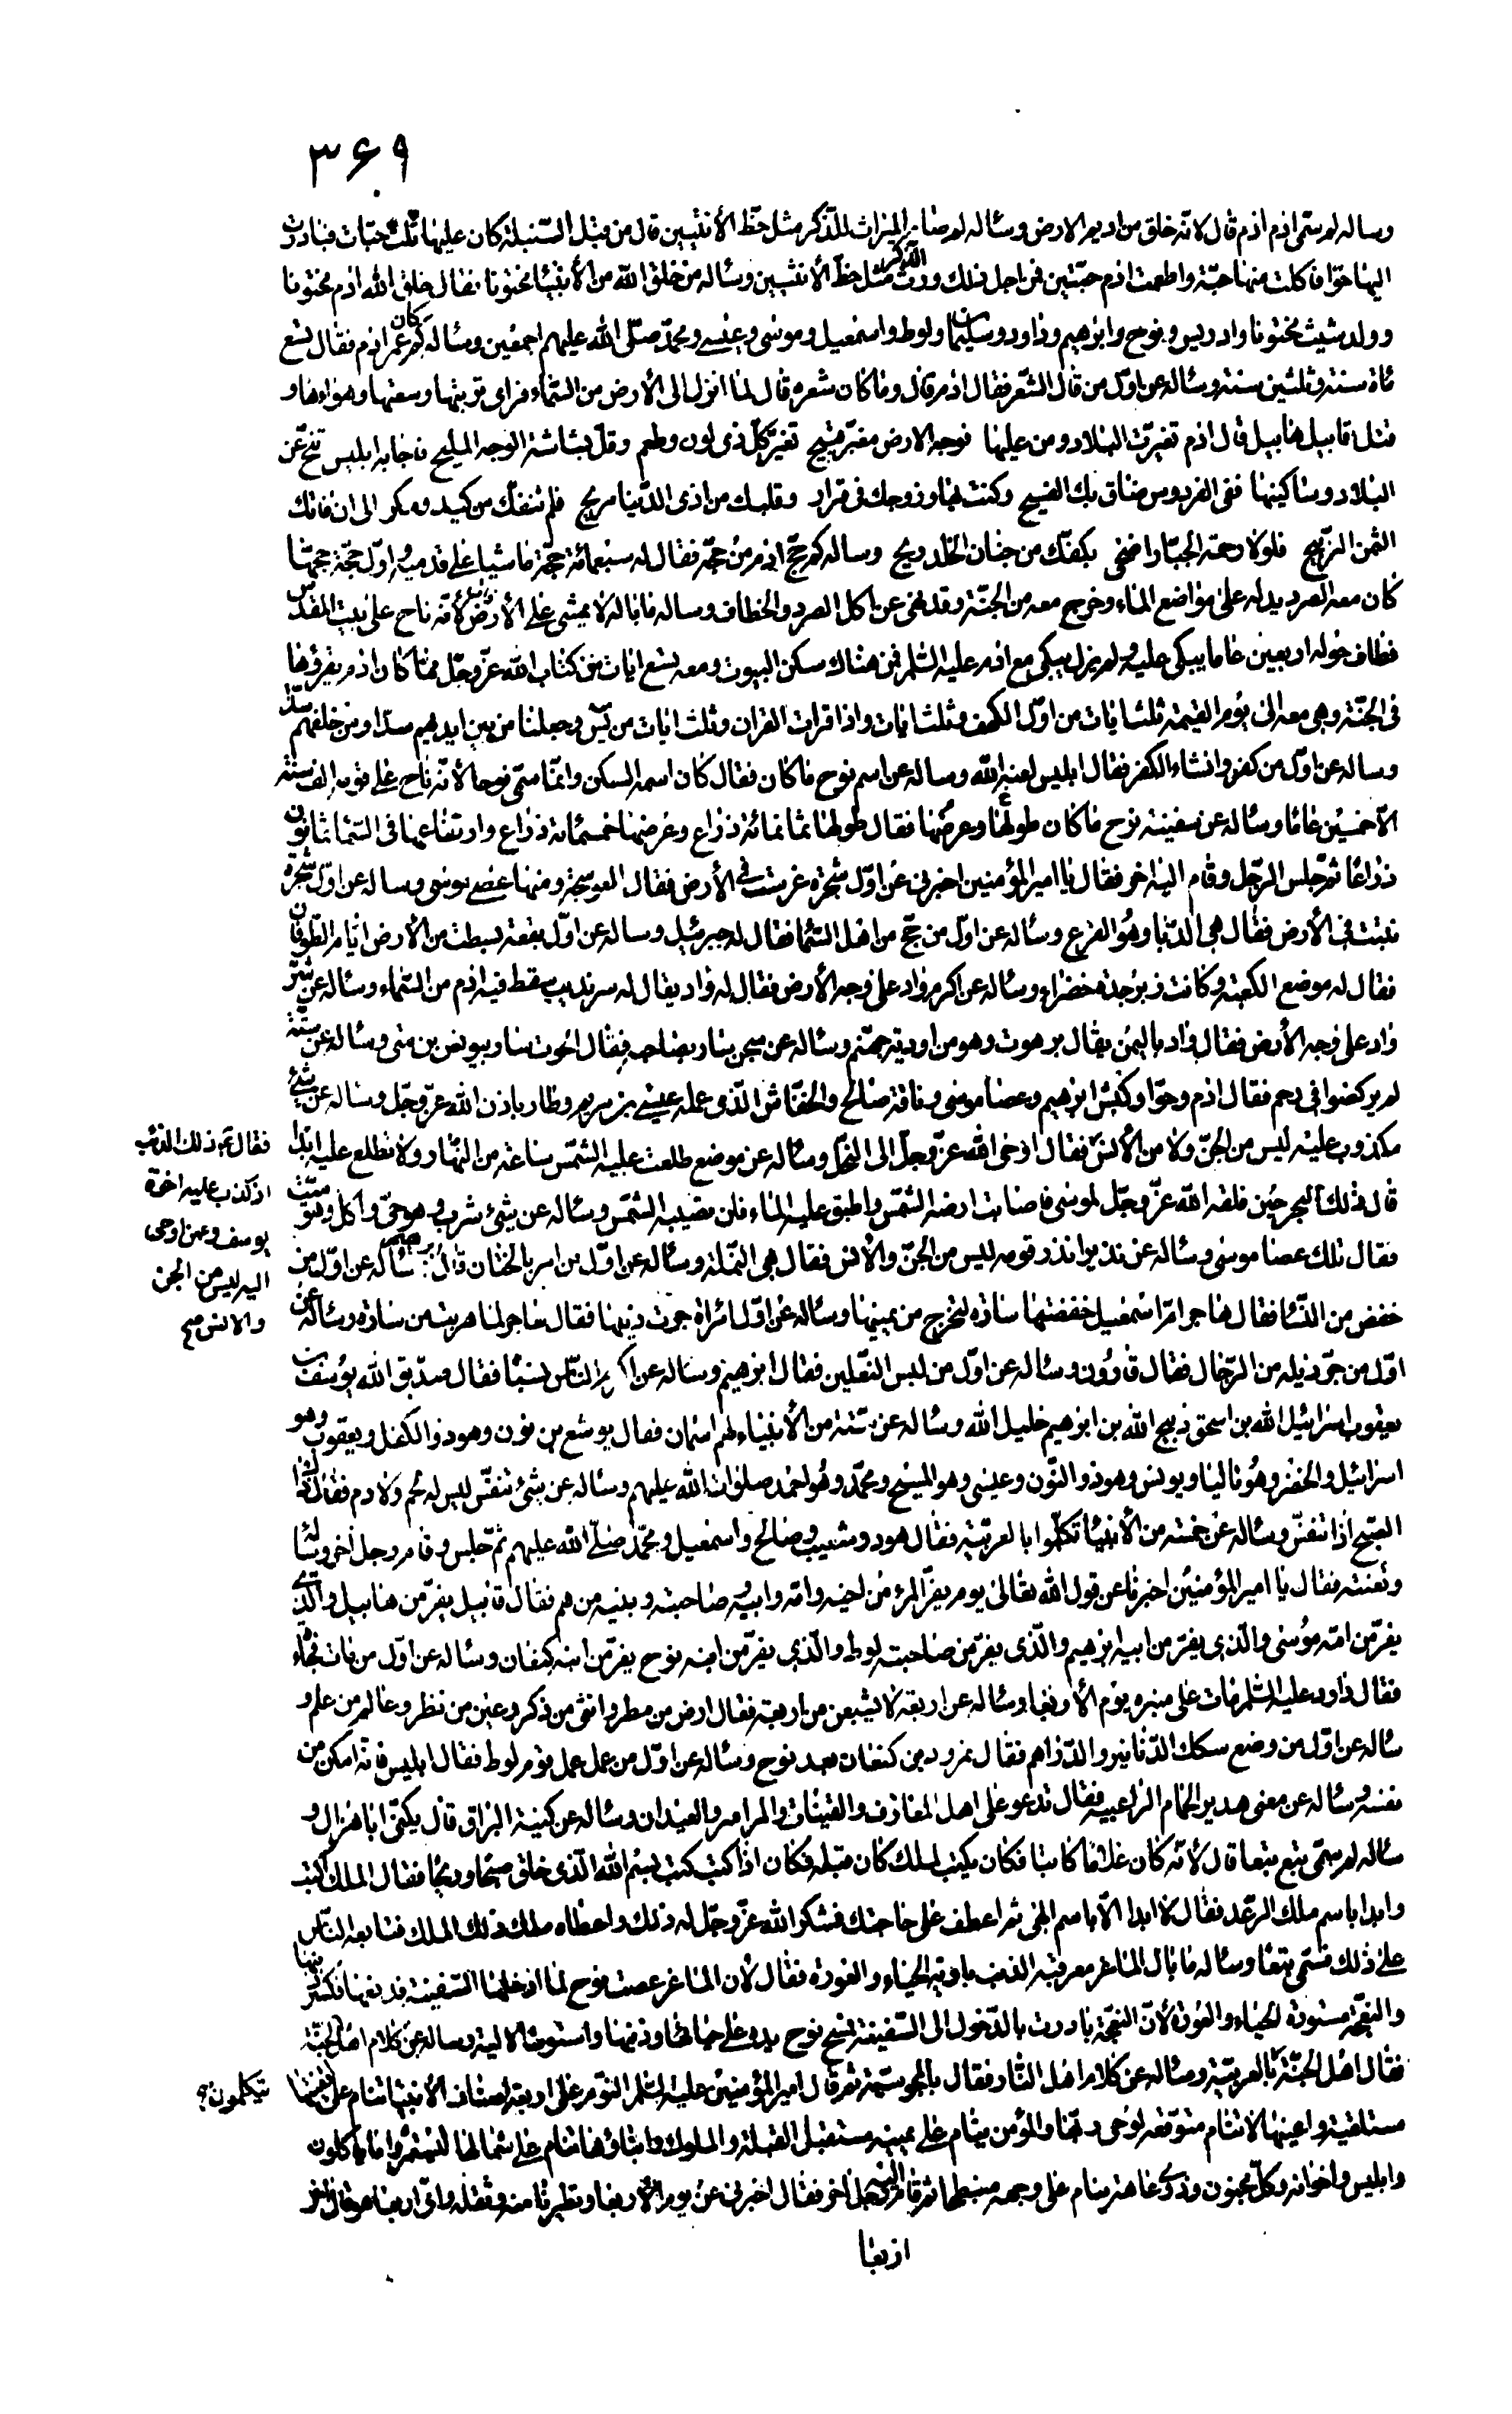 ۳۶۹
وساله لم سمّی ادم ادم قال لانّه خلق من اديم الارض وسئاله لم صار الميراث للذّكر مثل حظّ الأنثيين قال من قبل السّنبلة كان عليها ثلث حبّات فبادرت
اليها حوّا فاكلت منها حبّة واطعمت ادم حبّتين فمن اجل ذلك ورث الذّكر مثل حظّ الأنثيين وسئاله من خلق الله من الأنبيا مختونا فقال خلق الله ادم مختونا
وولد شيث مختونا وادريس ونوح وابرهيم وداود وسليمان ولوط واسمعيل وموسى وعيسى ومحمّد صلّى الله عليهم اجمعين وسئاله كم كان عمر ادم فقال تسع
مأة سنة وثلثين سنة وسئاله عن اوّل من قال الشّعر فقال ادم قال وما كان شعره قال لما انزل الى الأرض من السّماء فراى تربتها وسعتها وهواءها و
قتل قابيل هابيل قال ادم تغيّرت البلاد ومن عليها فوجه الارض مغبّر قبيح تغيّر كلّ ذى لون وطعم وقلّ بشاشة الوجه المليح فاجابه ابليس تنحّ عن
البلاد وساكنيها ففى الفردوس ضاق بك الفسيح وكنت بها وزوجك فى قرار وقلبك من اذى الدّنيا مريح فلم تنفكّ من كيدى ومكرى الى ان فاتك
الثمن الرّبيح فلولا رحمة الجبّار اضحى بكفّك من جنان الخلد ريح وساله كم حجّ ادم من حجّة فقال له سبعمائة حجّة ماشيا على قدميه واوّل حجّة حجّها
كان معه الصرد يدله على مواضع الماء وخرج معه من الجنّة وقد نهى عن اكل الصرد والخطاف وساله ما باله لا يمشى على الأرض قال لأنّه ناح على بيت المقدس
فطاف حوله اربعين عاما يبكى عليه ولم يزل يبكى مع ادم عليه السّلم فمن هناك سكن البيوت ومعه تسع ايات من كتاب الله عزّ وجلّ ممّا كان ادم يقرؤها
فى الجنّة وهى معه الى يوم القيمة ثلث ايات من اوّل الكهف وثلث ايات واذا قرات القران وثلث ايات من يس وجعلنا من بين ايديهم سدّا ومن خلفهم سدّا
وساله عن اوّل من كفر وانشاء الكفر فقال ابليس لعنه الله وساله عن اسم نوح ما كان فقال كان اسمه السكن وانّما سمّى نوحا لأنّه ناح على قومه الف سنة
الّا خمسين عاما وسئاله عن سفينة نوح ما كان طولها وعرضها فقال طولها ثمانمائة ذراع وعرضها خمسمائة ذراع وارتفاعها فى السّما ثمانون
ذراعا ثم جلس الرّجل وقام اليه اخر فقال يا امير المؤمنين اخبرنى عن اوّل شجرة غرست فى الأرض فقال العوسجة ومنها عصى موسى وساله عن اوّل شجرة
نبتت فى الأرض فقال هى الدّبا وهو القرع وسئاله عن اوّل من حجّ من اهل السّما فقال له جبرئيل وساله عن اوّل بقعة بسطت من الأرض ايّام الطّوفان
فقال له موضع الكعبة وكانت زبرجدة خضراء وسئاله عن اكرم واد على وجه الأرض فقال له واد يقال له سرنديب سقط فيه ادم من السّماء وسئاله عن شرّ
واد على وجه الأرض فقال واد باليمن يقال برهوت وهو من اودية جهنّم وسئاله عن سجن سار بصاحبه فقال الحوت سار بيونس بن متى وسئاله عن ستّة
لم يركضوا فى رحم فقال ادم وحوّا وكبش ابرهيم وعصا موسى وناقة صالح والخفّاش الّذى عمله عيسى بن مريم وطار باذن الله عزّ وجلّ وساله عن شئ
مكذوب عليه ليس من الجنّ ولا من الأنس فقال اوحى الله عزّ وجلّ الى النّحل وسئاله عن موضع طلعت عليه الشّمس ساعة من النّهار ولا تطلع عليه ابدا
قال ذلك البحر حين فلقه الله عزّ وجلّ لموسى فاصابت ارضه الشّمس واطبق عليه الماء فلن تصيبه الشّمس وسئاله عن شئ شرب وهو حىّ واكل وهو ميّت
فقال تلك عصا موسى وسئاله عن نذير انذر قومه ليس من الجنّ والأنس فقال هى النّملة وسئاله عن اوّل من امر بالختان قال ابرهيم وسئاله عن اوّل من
خفض من النّسا فقال هاجر امّ اسمعيل خفضتها ساره لتخرج من يمينها وسئاله عن اوّل امراة جرت ذيلها فقال هاجر لما هربت من ساره وسئاله عن
اوّل من جرّ ذيله من الرّجال فقال قارون وسئاله عن اوّل من لبس النّعلين فقال ابرهيم وساله عن اكرم النّاس نسبا فقال صدّيق الله يوسف بن
يعقوب اسرائيل الله بن اسحق ذبيح الله بن ابرهيم خليل الله وسئاله عن ستّة من الأنبياء لهم اسمان فقال يوشع بن نون وهو ذو الكفل ويعقوب وهو
اسرائيل والخضر وهو تاليا ويونس وهو ذو النّون وعيسى وهو المسيح ومحمّد وهو احمد صلوات الله عليهم وسئاله عن شئ تنفّس ليس له لحم ولا دم فقال ذاك
الصّبح اذا تنفّس وسئاله عن خمسة من الأنبيا تكلّموا بالعربيّة فقال هود وشعيب وصالح واسمعيل ومحمّد صلّى الله عليهم ثمّ جلس وقام رجل اخر وسئاله
وتعنته فقال يا امير المؤمنين اخبرنا عن قول الله تعالى يوم يفرّ المرء من اخيه وامّه وابيه وصاحبته وبنيه من هم فقال قابيل يفرّ من هابيل والّذى
يفرّ من امّه موسى والّذى يفرّ من ابيه ابرهيم والّذى يفرّ من صاحبته لوط والّذى يفرّ من ابنه نوح يفرّ من ابنه كنعان وسئاله عن اوّل من مات فجأة
فقال داود عليه السّلم مات على منبره يوم الأربعا وسئاله عن اربعة لا يشبعن من اربعة فقال ارض من مطر وانثى من ذكر وعين من نظر وعالم من علم و
سئاله عن اوّل من وضع سكك الدّنانير والدّراهم فقال نمرود بن كنعان بعد نوح وسئاله عن اوّل من عمل عمل قوم لوط فقال ابليس فانّه امكن من
نفسه وسئاله عن معنى هدير الحمام الراعبيه فقال تدعو على اهل المعازف والقينات والمزامير والعيدان وسئاله عن كنية البراق قال يكنّى ابا هزال و
سئاله لم سمّى تبع تبعا قال لأنّه كان غلاما كاتبا فكان يكتب لملك كان قبله فكان اذا كتب كتب بسم الله الّذى خلق صبحا وريحا فقال الملك اكتب
وابدا باسم ملك الرّعد فقال لا ابدا الّا باسم الهى ثم اعطف على حاجتك فشكر الله عزّ وجلّ له ذلك واعطاه ملك ذلك الملك فتابعه النّاس
على ذلك فسمّى تبعا وسئاله ما بال الماعز معرقبة الذنب بادية الحياء والعورة فقال لأن الماعز عصت نوح لما ادخلها السّفينة فدفعها فكسر ذنبها
والنعجة مستورة الحياء والعورة لأنّ النعجة بادرت بالدّخول الى السّفينة فمسح نوح يده على حياها وذنبها واستوت الالية وساله عن كلام اهل الجنّة
فقال اهل الجنّة بالعربيّة وسئاله عن كلام اهل النّار فقال بالمجوسيّة ثم قال امير المؤمنين عليه السّلم النوم على اربعة اصناف الأنبيا تنام على اقفيتها
مستلقية واعينها لا تنام متوقّعه لوحى ربّها والمؤمن ينام على يمينه مستقبل القبلة والملوك وابناؤها تنام على شمالها ليستمرؤا ما ياكلون
وابليس واخوانه وكلّ مجنون وذى عاهة ينام على وجهه منبطحا ثم قام اليه رجل اخر فقال اخبرنى عن يوم الأربعا وتطيرنا منه وثقله واىّ اربعا هو قال اخر
اربعا
فقال ع ذلك الذئب
اذ كذب عليه اخوة
يوسف وعن اوحى
اليه ليس من الجن
والانس صح
يتكلمون